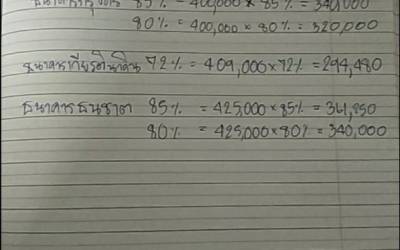 85% = 400,000 × 85% = 340,000
80% = 400,000 × 80% = 320,000
ธนาคารเกียรตินาคิน 72% = 409,000 × 72% = 294,480
ธนาคารธนชาต 85% = 425,000 × 85% = 361,250
80% = 425,000 × 80% = 340,000